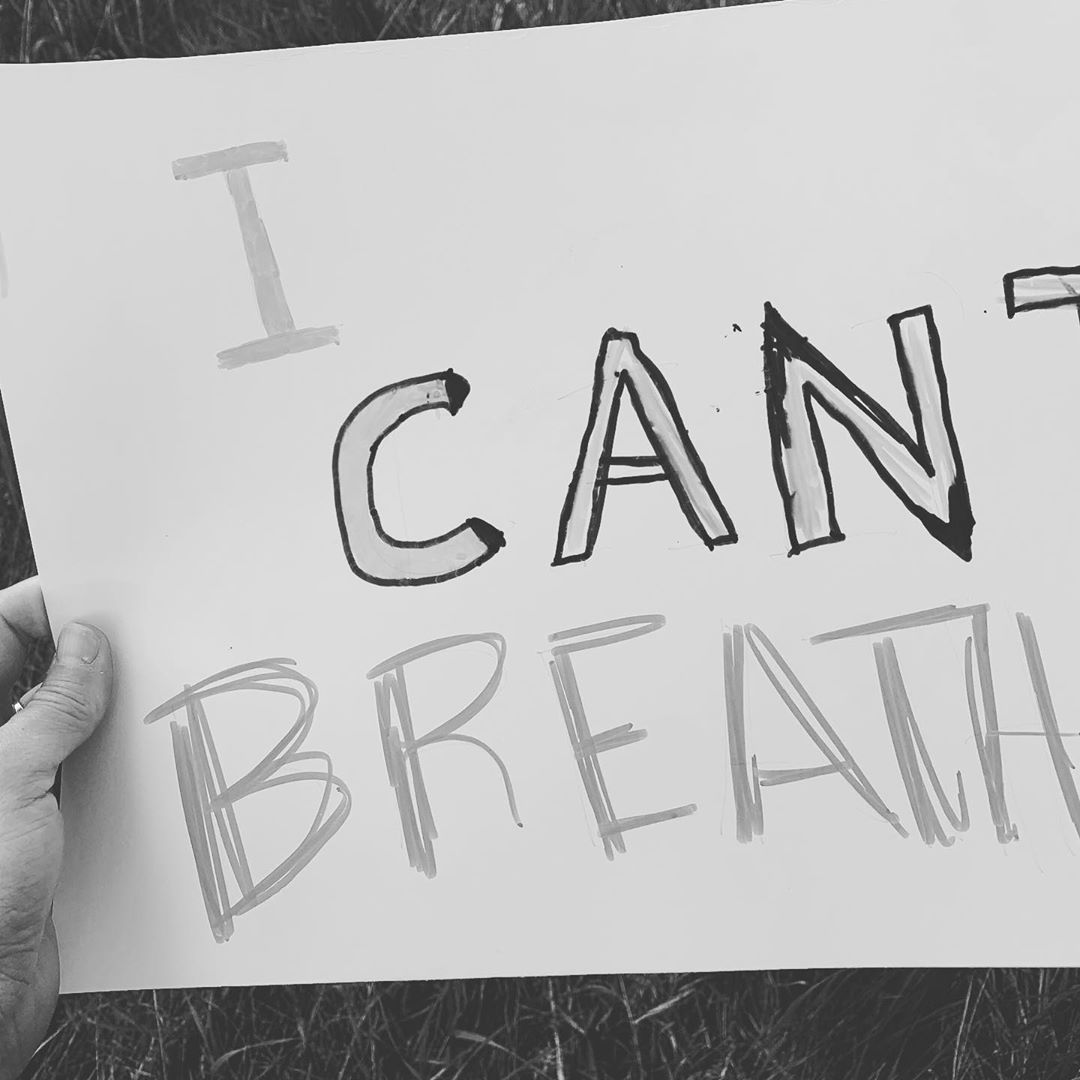 I
CANT
BREATH